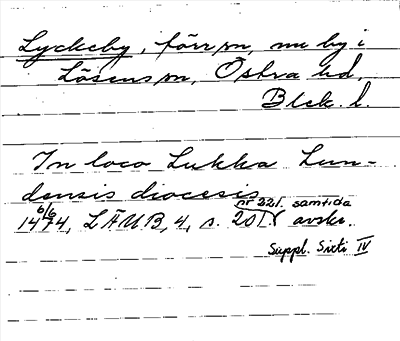 Lyckeby, förr sn, nu by i
Lösens sn, Östra hd,
Blek. l.
In loco Lukka Lun-
densis diocesis
6/6 1474, LÄUB, 4, s. 201. nr 221. samtida avskr.
Suppl. Sixti IV